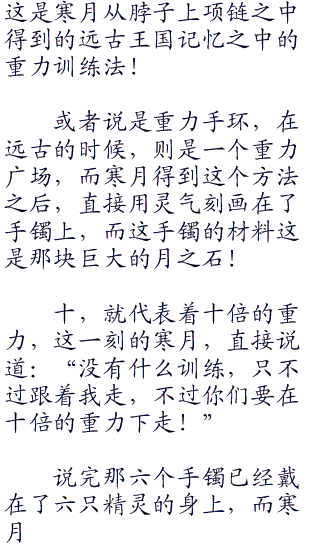 这是寒月从脖子上项链之中
得到的远古王国记忆之中的
重力训练法！
或者说是重力手环，在
远古的时候，则是一个重力
广场，而寒月得到这个方法
之后，直接用灵气刻画在了
手镯上，而这手镯的材料这
是那块巨大的月之石！
十，就代表着十倍的重
力，这一刻的寒月，直接说
道：“没有什么训练，只不
过跟着我走，不过你们要在
十倍的重力下走！”
说完那六个手镯已经戴
在了六只精灵的身上，而寒
月